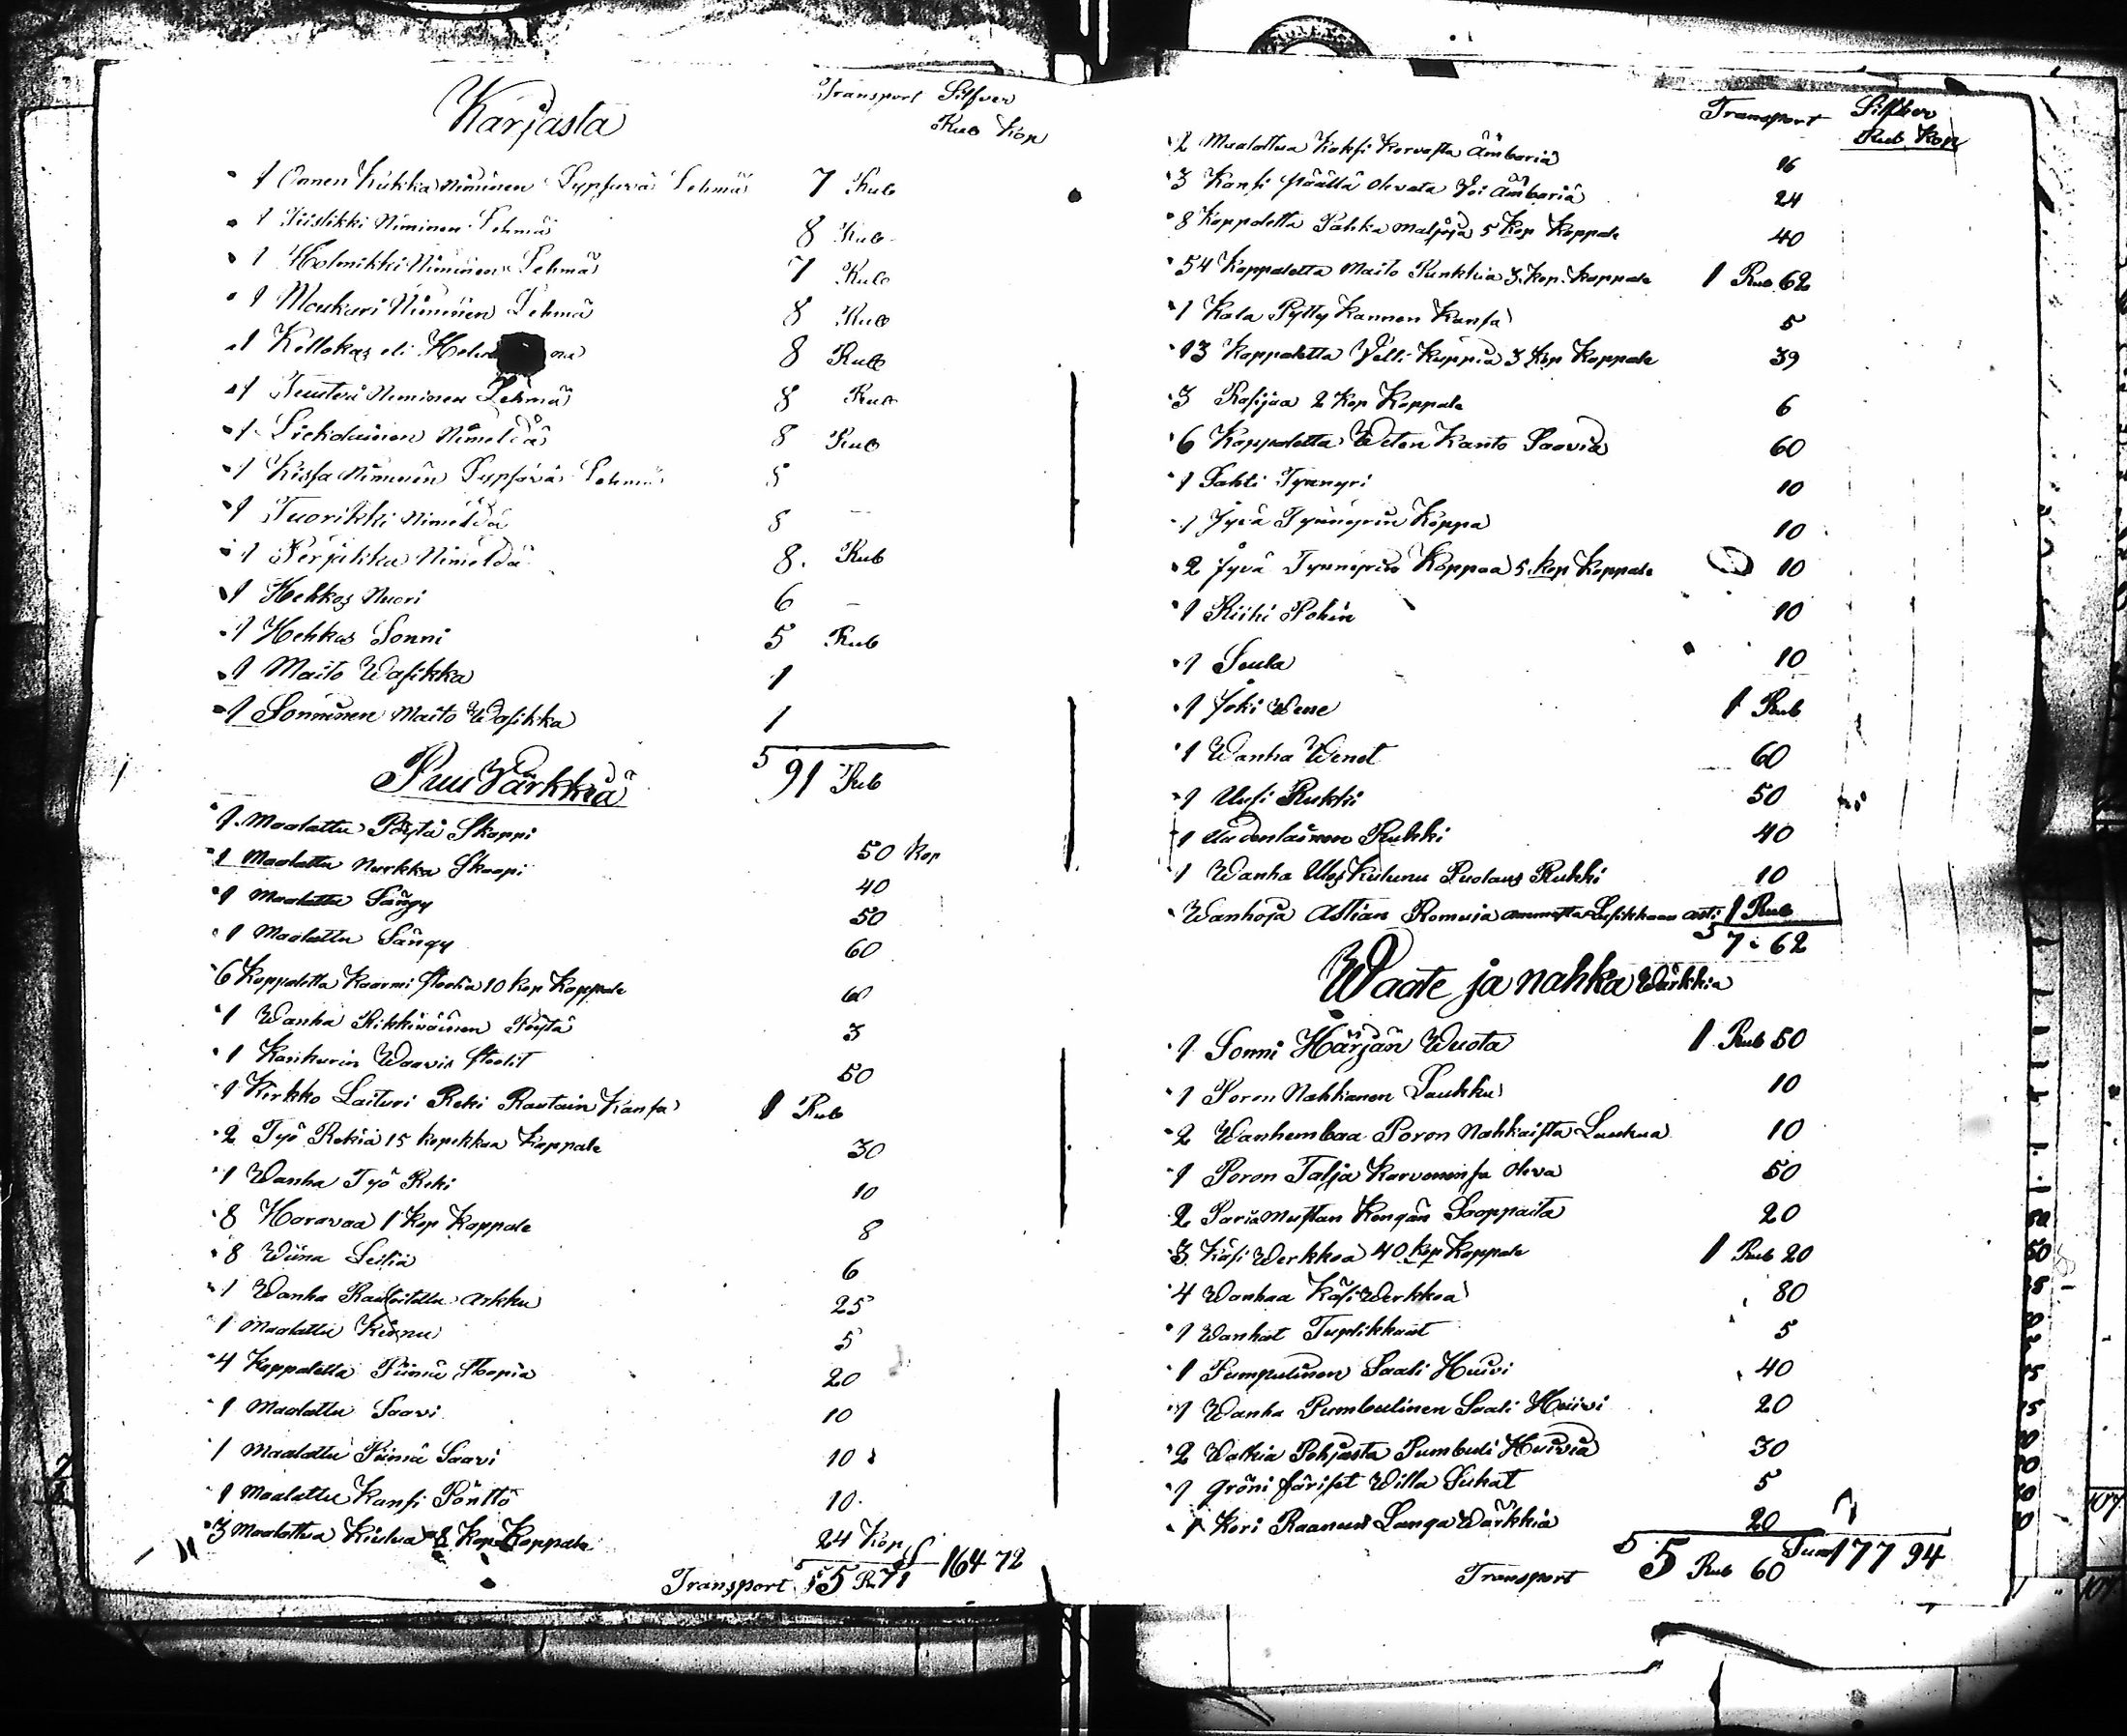 Karjasta
Transport Silfver
Rub Kop
1 Onnen Kukka niminen Lypsävä Lehmä 7 Rub
1 Tiistikki Niminen Lehmä 8 Rub
1 Holmikki Niminen Lehmä 7 Rub
1 Moukari Niminen Lehmä 8 Rub
1 Kellokas eli 8 Rub
1 Teuteri Niminen Lehmä 8 Rub
1 Nimeldä 8 Rub
1 Kissa Niminen Lypsävä Lehmä 8
1 Tuorikki Nimeldä 8 —
1 Perjikka Nimeldä 8. Rub
1 Hehkos Nuori 6 —
1 Hehkos Sonni 5 Rub
1 Maito Wasikka 1
1 Sonninen Maito Wasikka 1
S 91 Rub
Puu Värkkiä
1 Maalattu Pöytä Skappi 50 Kop
1 Maalattu Nurkka Skaapi 40
1 Maalattu Sängy 50
1 Maalattu Sängy 60
6 Kappaletta Kaarmi stoolia 10 kop Kappale 60
1 Wanha Rikkinäinen Pöytä 3
1 Kankurin Waavin stoolit 50
1 Kirkko Laituri Reki Rautain Kansa 1 Rub
2 Työ Rekiä 15 kopekkaa Kappale 30
1 Wanha Työ Reki 10
8 Haravaa 1 Kop Kappale 8
8 Wiina Leiliä 6
1 Wanha Rautoitettu Arkku 25
1 Maalattu Kirnu 5
4 Kappaletta Piimä stopia 20
1 Maalattu Saavi 10
1 Maalattu Piimä Saavi 10
1 Maalattu Kansi Pönttö 10
3 Maalattua Kiulua 8 Kop Kappale 24 Kop
Transport S 5 R 71 S 164 72
Transport Silfver
Rub Kop
2 Maalattua Kaksi Korvasta Ämbäriä 16
3 Kansi päällä olevata Voi Ämbäriä 24
8 Kappaletta Pahka Maljoja 5 Kop Kappale 40
54 Kappaletta Maito Punkkia 3 kop. Kappale 1 Rub 62
1 Kala Pytty Kannen Kansa 5
13 Kappaletta Velli Kuppia 3 Kop Kappale 39
3 Rasijaa 2 Kop Kappale 6
6 Kappaletta Weten Kanto Saavia 60
1 Sahti Tynnyri 10
1 Jyvä Tynnyrin Koppa 10
2 Jyvä Tynnyrin Koppaa 5 kop Kappale 10
1 Riihi Pohin 10
1 Seula 10
1 Joki Wene 1 Rub
1 Wanha Wenet 60
1 Uusi Rukki 50
1 Uudenlainen Rukki 40
1 Wanha Ulos Kulunu Puolaus Rukki 10
Wanhoja Astian Romuja ammesta Lusikkaan asti 1 Rub
S 7 : 62
Waate ja nahka Wärkkiä
1 Sonni Härjän Wuota 1 Rub 50
1 Poron Nahkanen Laukku 10
2 Wanhembaa Poron Nahkaista Laukua 10
1 Poron Talja Karvoinensa Oleva 50
2 Paria Mustan Kengän Saappaita 20
3 Käsi Werkkoa 40 kop Kappale 1 Rub 20
4 Wanhaa Käsi Werkkoa 80
1 Wanhat 5
1 Pumpulinen Saali Huivi 40
1 Wanha Pumbulinen Saali Huivi 20
2 Walkia Pohjasta Pumbuli Huivia 30
1 gröni färiset Willa Sukat 5
1 Kori Raanun Langa Wärkkiä 20
S 5 Rub 60 Sum 177 94
Transport